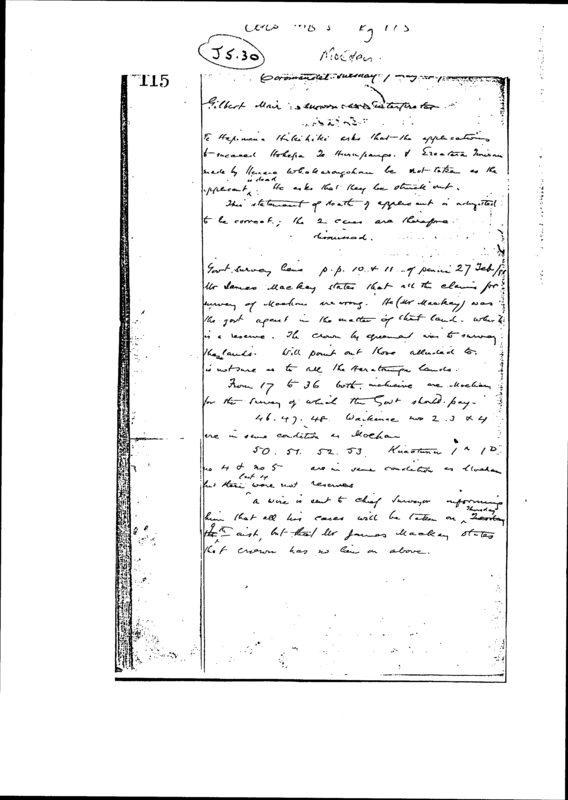 Pg 115
J5.30
Moehau
115
Coromandel Tuesday
Gilbert Mair sworn as Interpreter
Te Hapimana asks that the applications
to succeed Hohepa Te &
made by be not taken as the
applicant is dead. He asks that they be struck out.
This statement of death of applicant is admitted
to be correct; the 2 cases are therefore
dismissed.
Govt Survey liens p.p. 10 & 11 of 27 Feb
Mr James Mackay states that all the claims for
survey of Moehau are wrong. He (Mr Mackay) was
the govt agent in the matter of that land. which
is a reserve. The crown by agreement was to survey
these lands. Will point out those alluded to.
is not sure as to all the Harataunga lands.
From 17 to 36 both inclusive are Moehau
for the survey of which the Govt should pay.
46. 47. 48. Waikawau no 2. 3 & 4
are in same condition as Moehau
50. 51. 52. 53. Kuaotunu 1A 1D
no 4 & no 5 are in same condition as Moehau
but were not reserves
A wire is sent to Chief Surveyor informing
him that all his cases will be taken on Thursday
the inst, but that Mr James Mackay states
that crown has no lien on above.